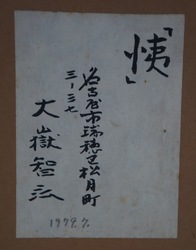 名古屋市瑞穂区松月町
三ー三七
大嶽智弘
1979.7.